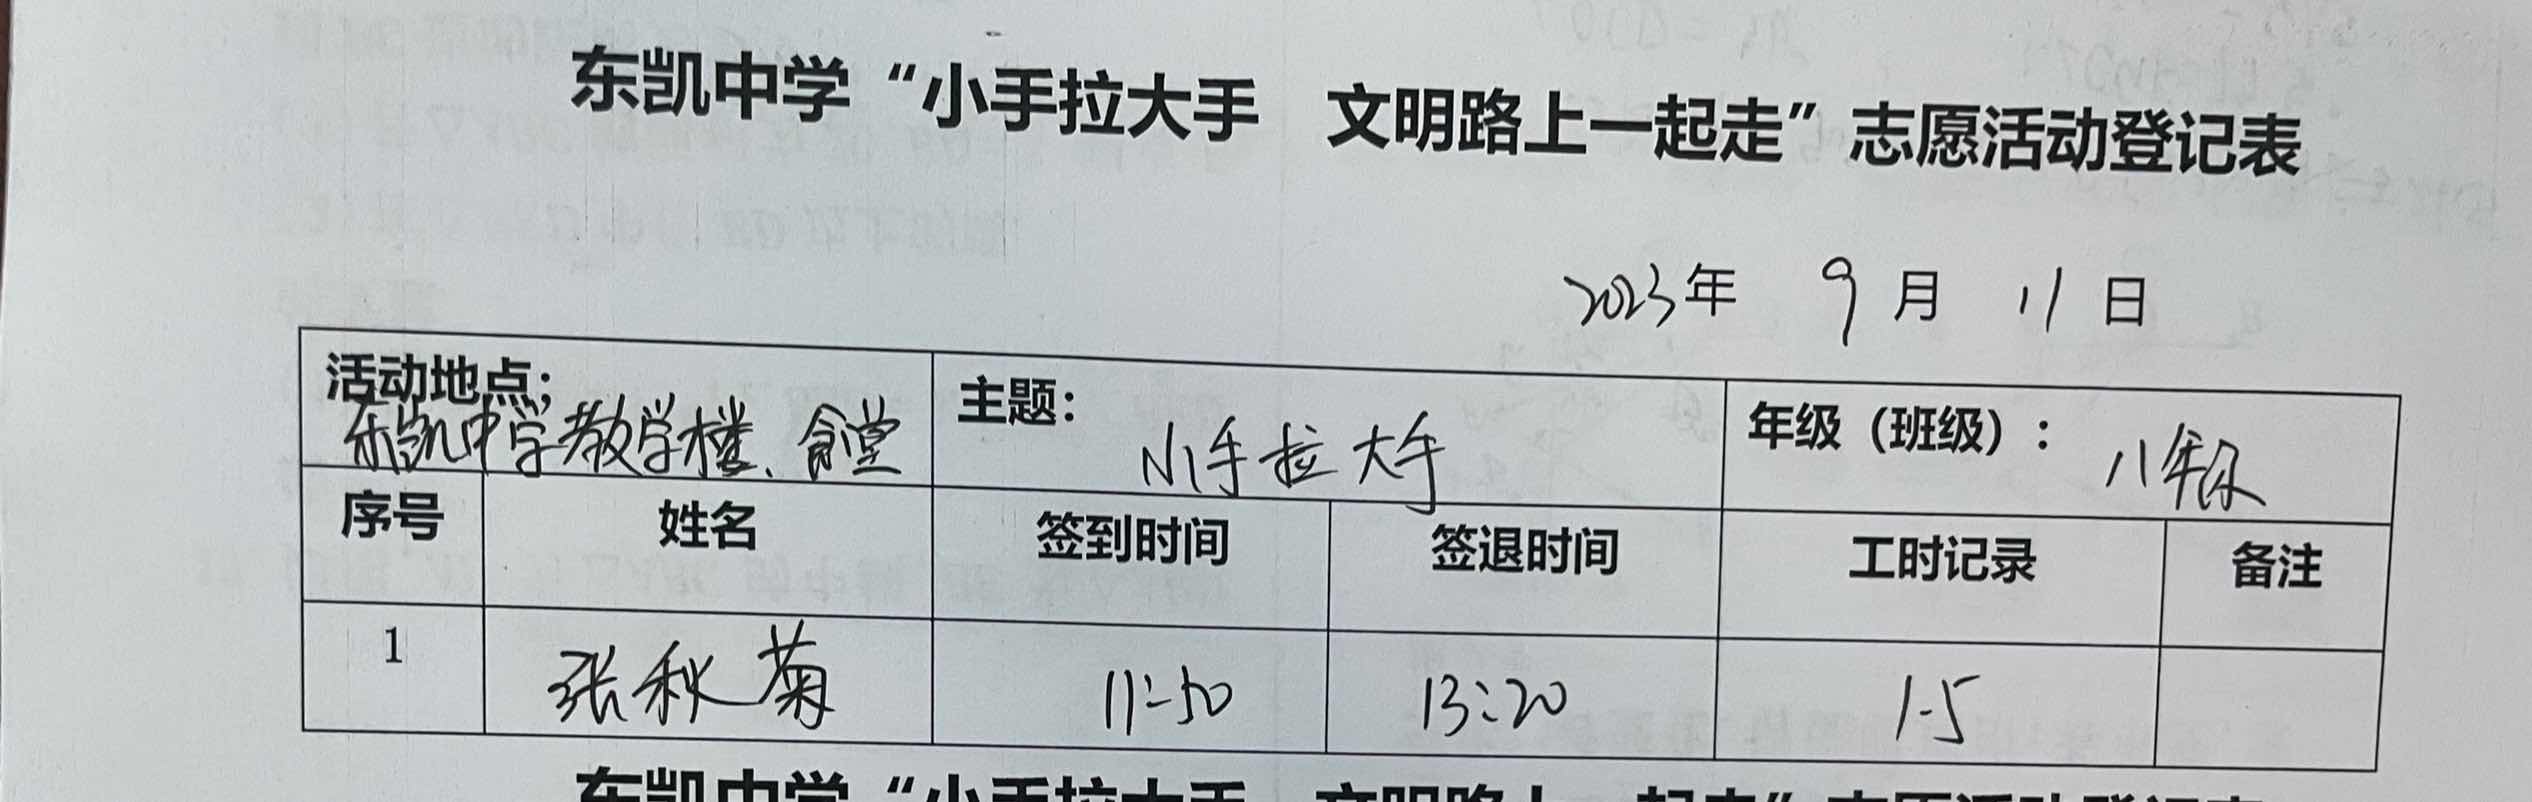 东凯中学“小手拉大手 文明路上一起走”志愿活动登记表
2023年 9月 11日
活动地点; 东凯中学教学楼、食堂
主题: 小手拉大手
年级（班级）: 八年级
序号 姓名 签到时间 签退时间 工时记录 备注
1 张秋菊 11:50 13:20 1.5
东凯中学“小手拉大手 文明路上一起走”志愿活动登记表